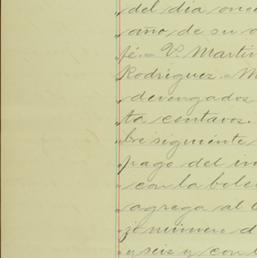 del dia once
año de su o
fé.= V. Martin
Rodriguez.= M
devengados
ta centavos.
bre siguiente
pago del im
con la bole
agrega al l
jo número d
y seis y con l